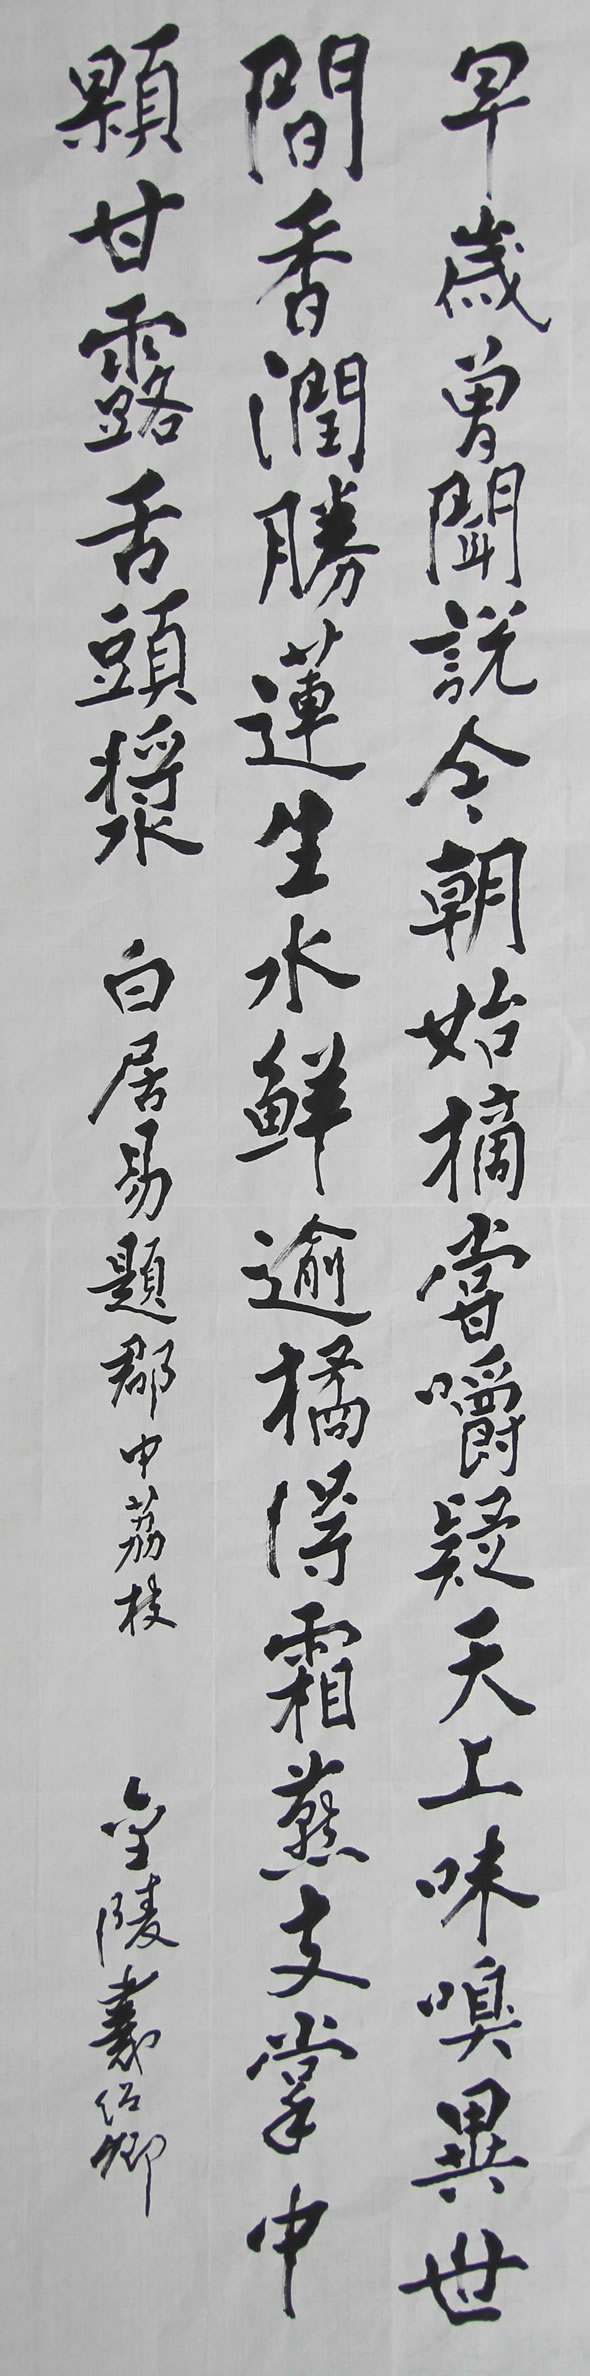 早歲曾聞說今朝始摘嘗嚼疑天上味嗅異世
間香潤勝蓮生水鮮逾橘得霜燕支掌中
顆甘露舌頭漿 白居易題郡中荔枝 金陵戴紹卿